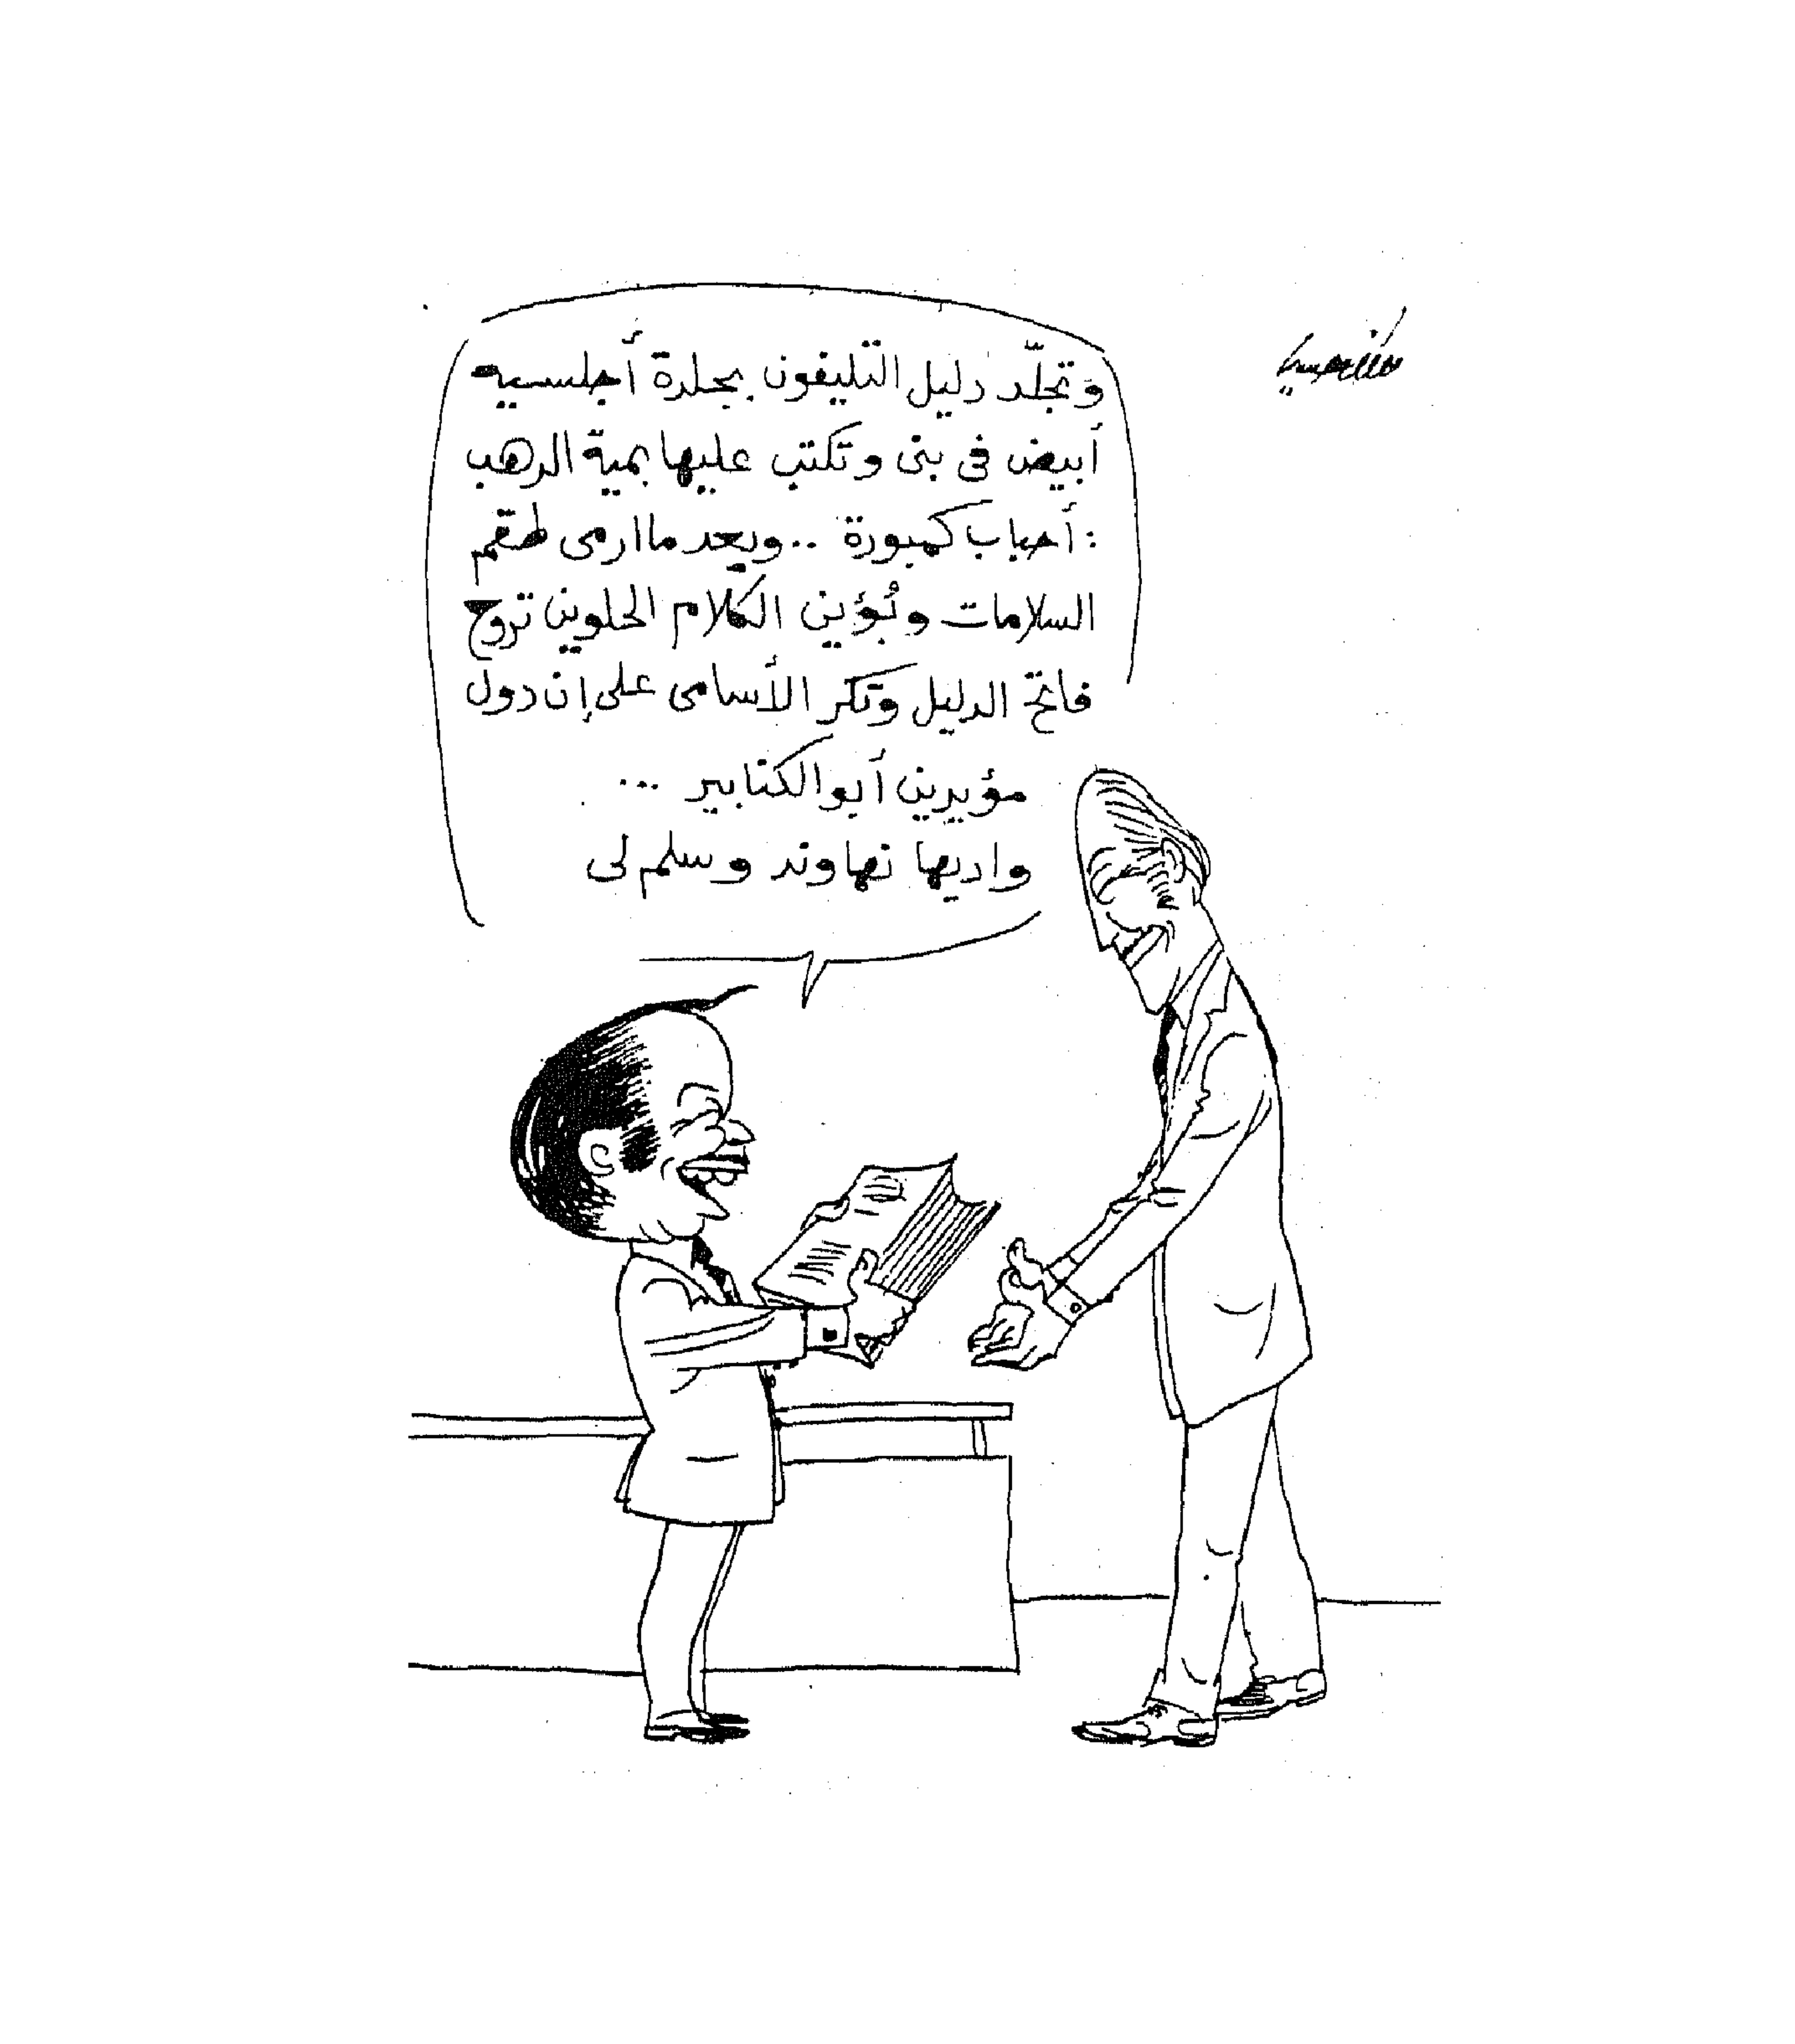 وتجلّد دليل التليفون بجلدة أجلسيه
أبيض فى بنى وتكتب عليها بمية الدهب
: أحباب كمبورة .. وبعد ما ارمى طقم
السلامات وبُؤين الكلام الحلوين تروح
فاتح الدليل وتكر الأسامى على إن دول
مؤيدين أبو الكنابير ...
واديها نهاوند وسلم لى